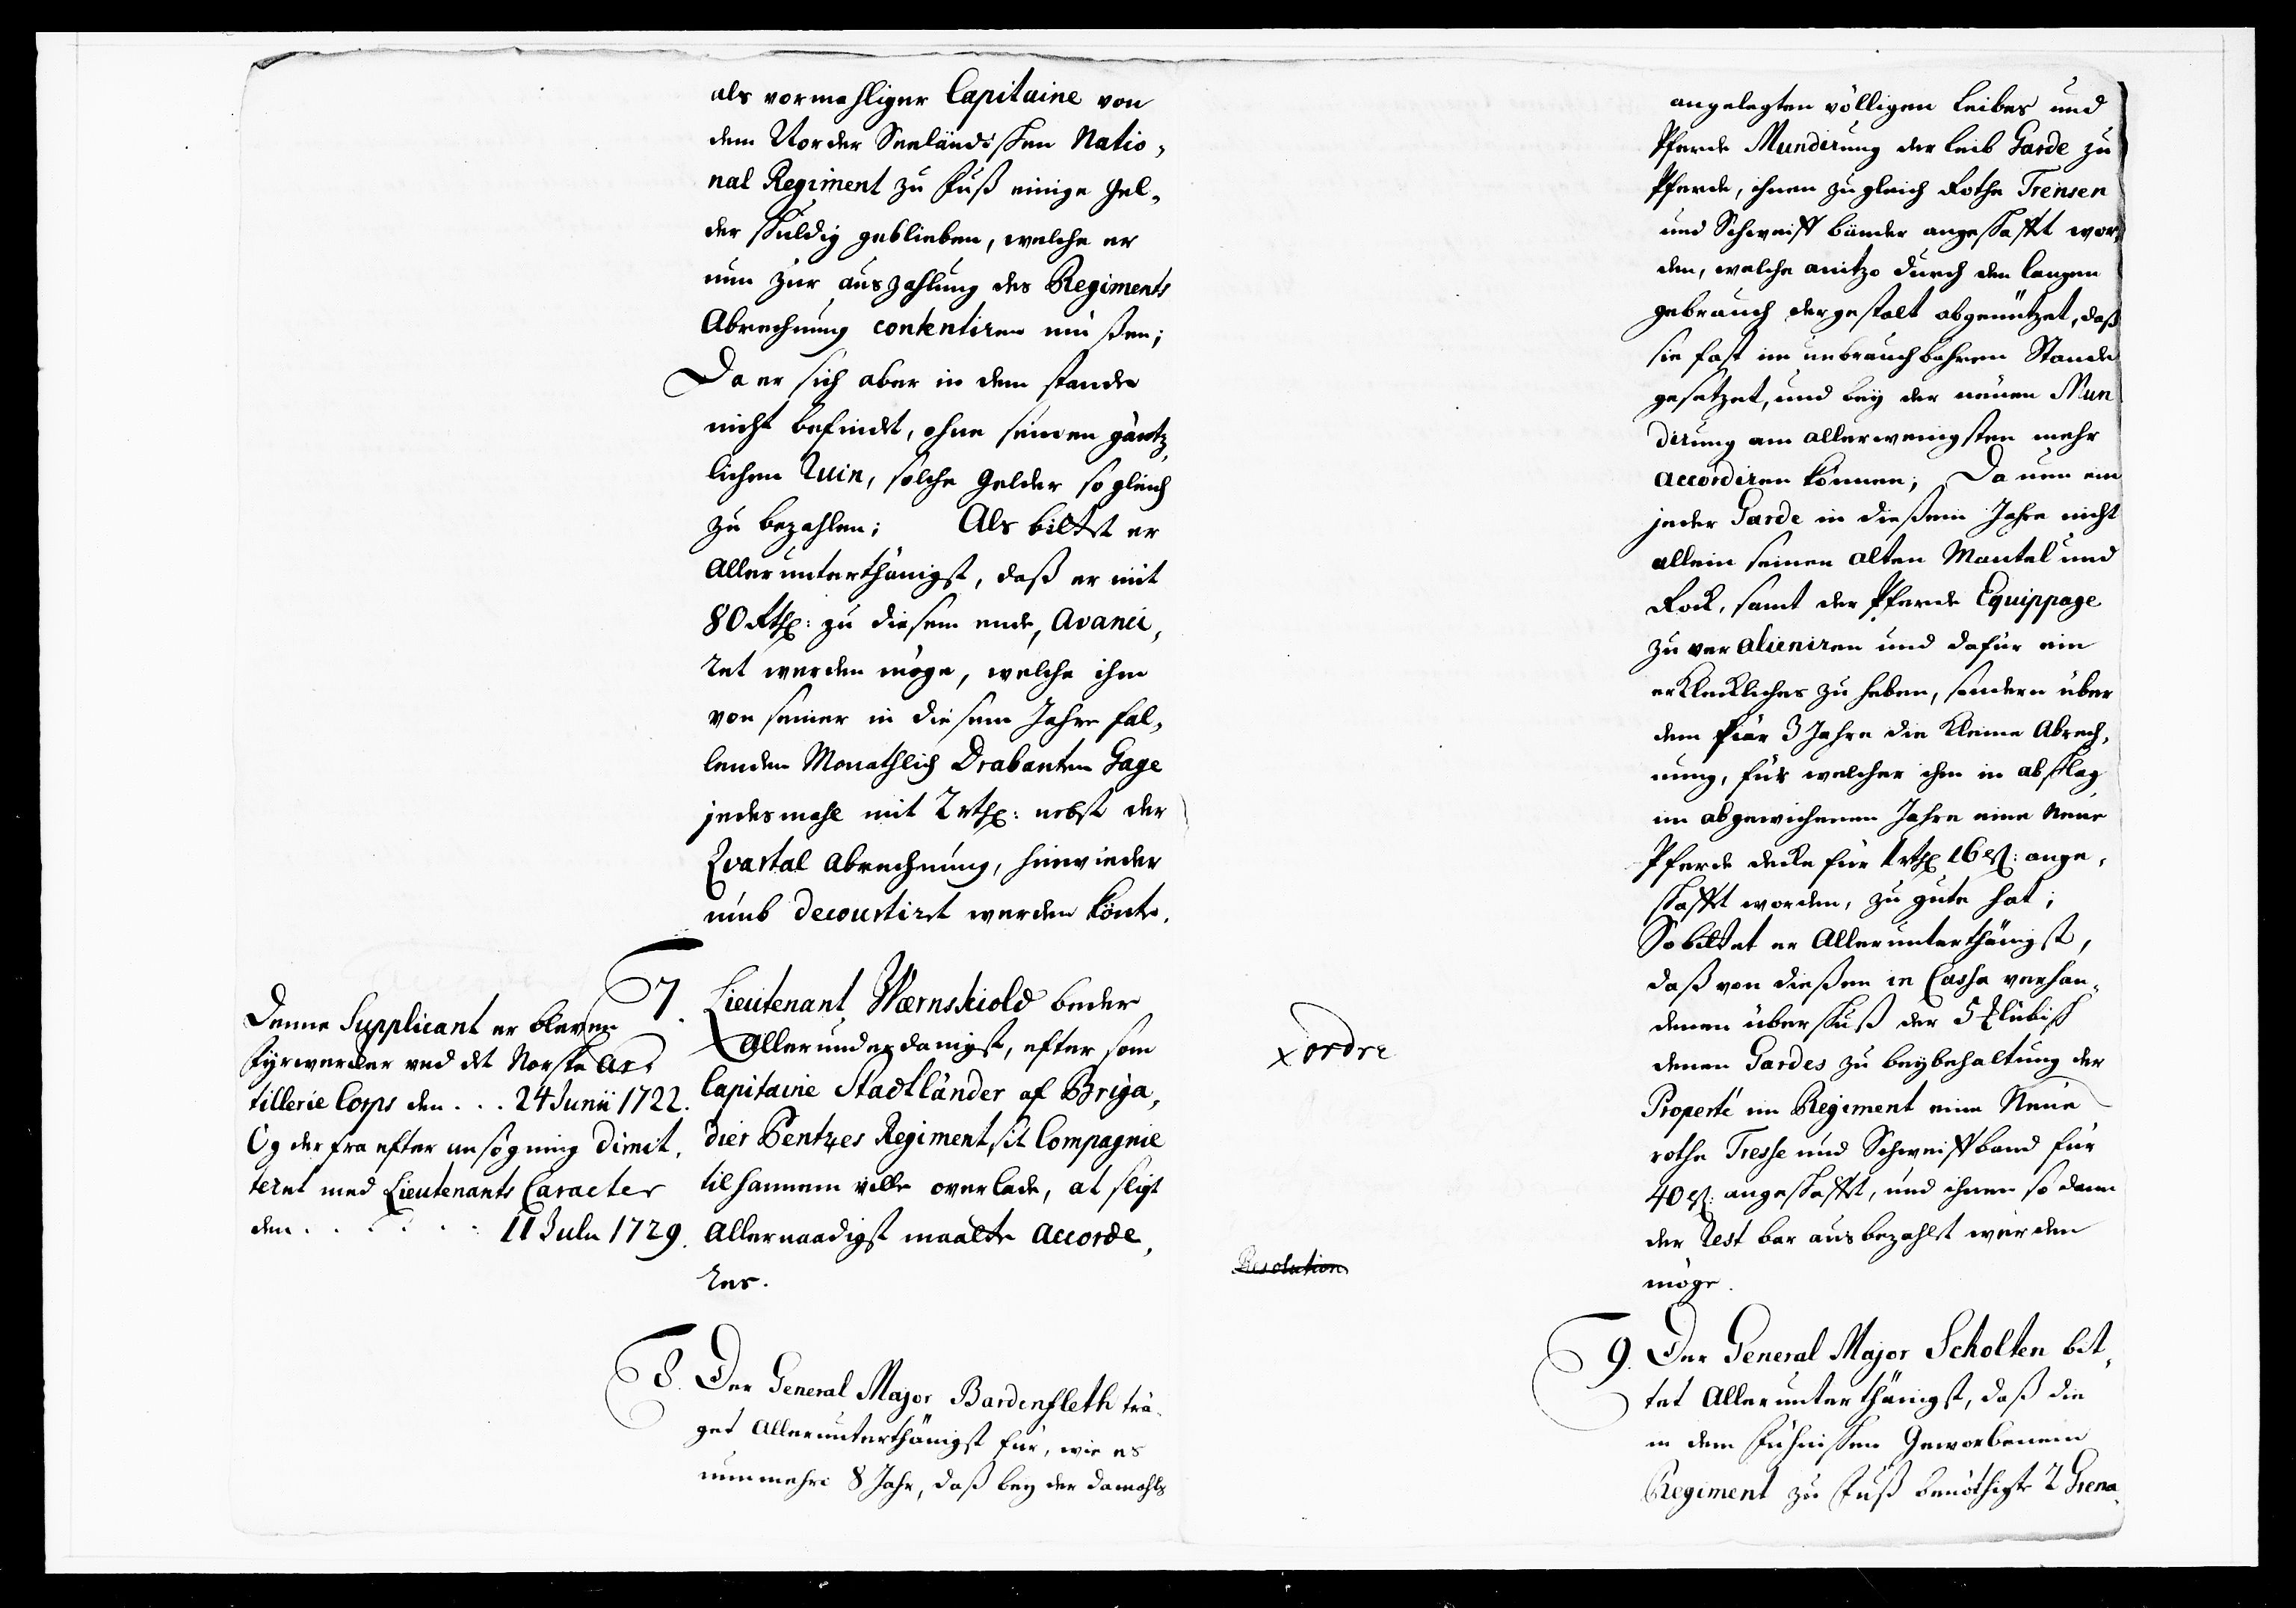 als vormahliger Capitaine von
dem Norder Seeländischen Natio,
nal Regiment zu Fuß einige Gel,
der schuldig geblieben, welche er
nun zur auszahlung des Regiments
Abrechnung contentiren müßen;
Da er sich aber in dem stande
nicht befindet, ohne seinen gäntz,
lichen Ruin, solche Gelder so gleich
zu bezahlen; Als bittet er
Allerunterthänigst, daß er mit
80 Rthl: zu diesem ende, Avanci,
ret werden möge, welche ihm
von seiner in diesem Jahre fal,
lenden Monathlich Drabanten Gage
jedesmahl mit 2 rthl: nebst der
Qvartal Abrechnung, hinwieder
umb decourtiret werden könte.
7. Lieutenant Wærnskiold beder
Allerunderdanigst, efter som
Capitaine Stadtländer af Briga,
dier Bentzes Regiment, sit Compagnie
til hannem ville overlade, at sligt
Allernaadigst maatte accorde,
res.
Denne Supplicant er bleven
Fyrwerker ved det Norske Ar,
tillerie Corps den . . . 24 Junii 1722.
Og der fra efter ansøgning dimit,
teret med Lieutenants Caracter
den . . . . . . 11 Julii 1729.
8. Der General Major Bardenfleth trä,
get Allerunterthänigst für, wie es
nunmehro 8 Jahr, daß bey der damahls
x ordre
Resolution
angelegten völligen Leibes und
Pferde Mundirung der Leib Garde zu
Pferde, ihnen zugleich Rothe Trensen
und Schweiff bänder angeschafft wor,
den, welche anitzo durch den langen
gebrauch dergestalt abgenützet, daß
sie fast im unbrauchbahren Stande
gesetzet, und bey der neuen Mun
dirung am allerwenigsten mehr
accordiren können; Da nun ein
jeder Garde in dießem Jahre nicht
allein seinen alten Mantel und
Rock, samt der Pferde Equippage
zu veralieniren und dafür ein
erkleckliches zu heben, sondern über
dem für 3 Jahre die kleine Abrech,
nung, für welcher ihm in abschlag
im abgewichenen Jahre eine Neue
Pferde decke für 1 rthl 16 ß: ange,
schafft worden, zu gute hat;
So bittet er Allerunterthänigst,
daß von dießen in Cassa verhan,
denen überschuß der 5 ₰ lübisch
denen Gardes zu beybehaltung der
Propertè im Regiment eine Neue
rothe Tresse und Schweiffband für
40 ß: angeschafft, und ihnen so dann
der Rest bar ausbezahlt werden
möge.
9. Der General Major Scholten bit,
tet Allerunterthänigst, daß die
in dem Fühnischen Geworbenem
Regiment zu Fuß benöthigte 2 Grena,